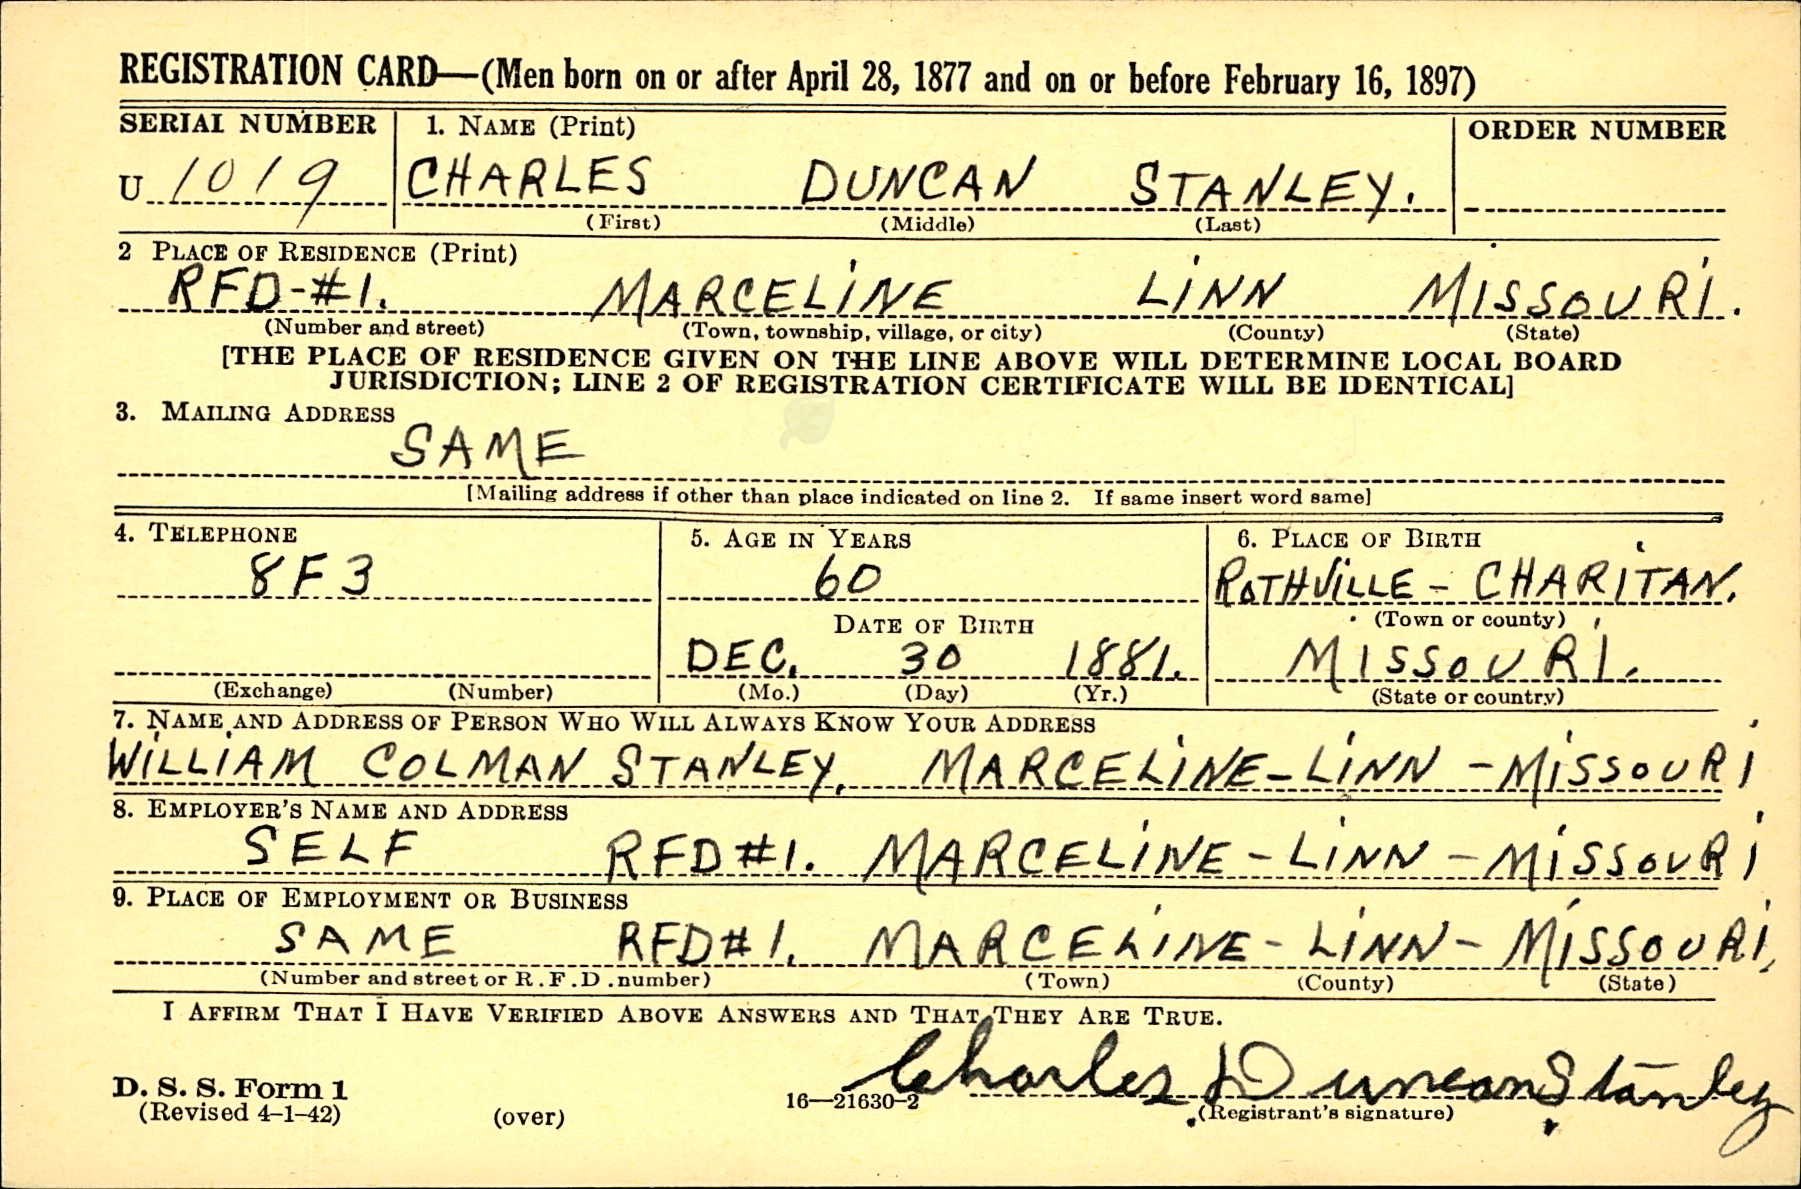 REGISTRATION CARD—(Men born on or after April 28, 1877 and on or before February 16, 1897)
SERIAL NUMBER 1. NAME (Print) ORDER NUMBER
U 1019 CHARLES DUNCAN STANLEY.
(First) (Middle) (Last)
2 PLACE OF RESIDENCE (Print)
RFD-#1. MARCELINE LINN MISSOURI.
(Number and street) (Town, township, village, or city) (County) (State)
[THE PLACE OF RESIDENCE GIVEN ON THE LINE ABOVE WILL DETERMINE LOCAL BOARD
JURISDICTION; LINE 2 OF REGISTRATION CERTIFICATE WILL BE IDENTICAL]
3. MAILING ADDRESS
SAME
[Mailing address if other than place indicated on line 2. If same insert word same]
4. TELEPHONE 5. AGE IN YEARS 6. PLACE OF BIRTH
8F3 60 ROTHVILLE - CHARITAN.
DATE OF BIRTH (Town or county)
DEC. 30 1881. MISSOURI.
(Exchange) (Number) (Mo.) (Day) (Yr.) (State or country)
7. NAME AND ADDRESS OF PERSON WHO WILL ALWAYS KNOW YOUR ADDRESS
WILLIAM COLMAN STANLEY, MARCELINE-LINN-MISSOURI
8. EMPLOYER'S NAME AND ADDRESS
SELF RFD#1. MARCELINE-LINN-MISSOURI
9. PLACE OF EMPLOYMENT OR BUSINESS
SAME RFD#1. MARCELINE-LINN-MISSOURI,
(Number and street or R.F.D. number) (Town) (County) (State)
I AFFIRM THAT I HAVE VERIFIED ABOVE ANSWERS AND THAT THEY ARE TRUE.
Charles Duncan Stanley
D. S. S. Form 1
(Revised 4-1-42) (over) 16—21630-2 (Registrant's signature)